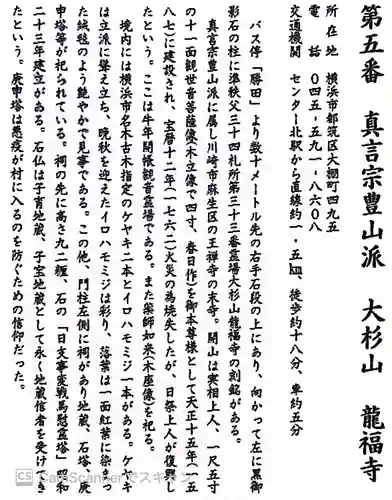 第五番　真言宗豊山派　大杉山　龍福寺
所在地　横浜市都筑区大棚町四九五
電　話　〇四五‐五九一‐八六〇八
交通機関　センター北駅から直線約一・五㎞、徒歩約十八分、車約五分
バス停「勝田」より数十メートル先の右手石段の上にあり、向かって左に黒御
影石の柱に準秩父三十四札所第三十三番霊場大杉山龍福寺の刻銘がある。
真言宗豊山派に属し川崎市麻生区の王禅寺の末寺。開山は実相上人、一尺五寸
の十一面観世音菩薩像（木立像で四寸、春日作）を御本尊様として天正十五年（一五
八七）に建設され、宝暦十二年（一七六二）火災の為焼失したが、日祭上人が復興し
たという。ここは牛年開帳観音霊場である。また薬師如来木座像を祀る。
境内には横浜市名木古木指定のケヤキ二本とイロハモミジ一本がある。ケヤキ
は立派に聳え立ち、晩秋を迎えたイロハモミジは彩り、落葉は一面紅葉に染まっ
た絨毯のよう艶やかで見事である。この他、門柱左側に祠があり地蔵、石塔、庚
申塔等が祀られている。祠の先に高さ九二糎、石の「日支事変戦馬慰霊塔」昭和
二十三年建立がある。石仏は子育地蔵、子宝地蔵として永く地蔵信者を受けてき
たという。庚申塔は悪疫が村に入るのを防ぐための信仰だった。
CS CamScannerでスキャン